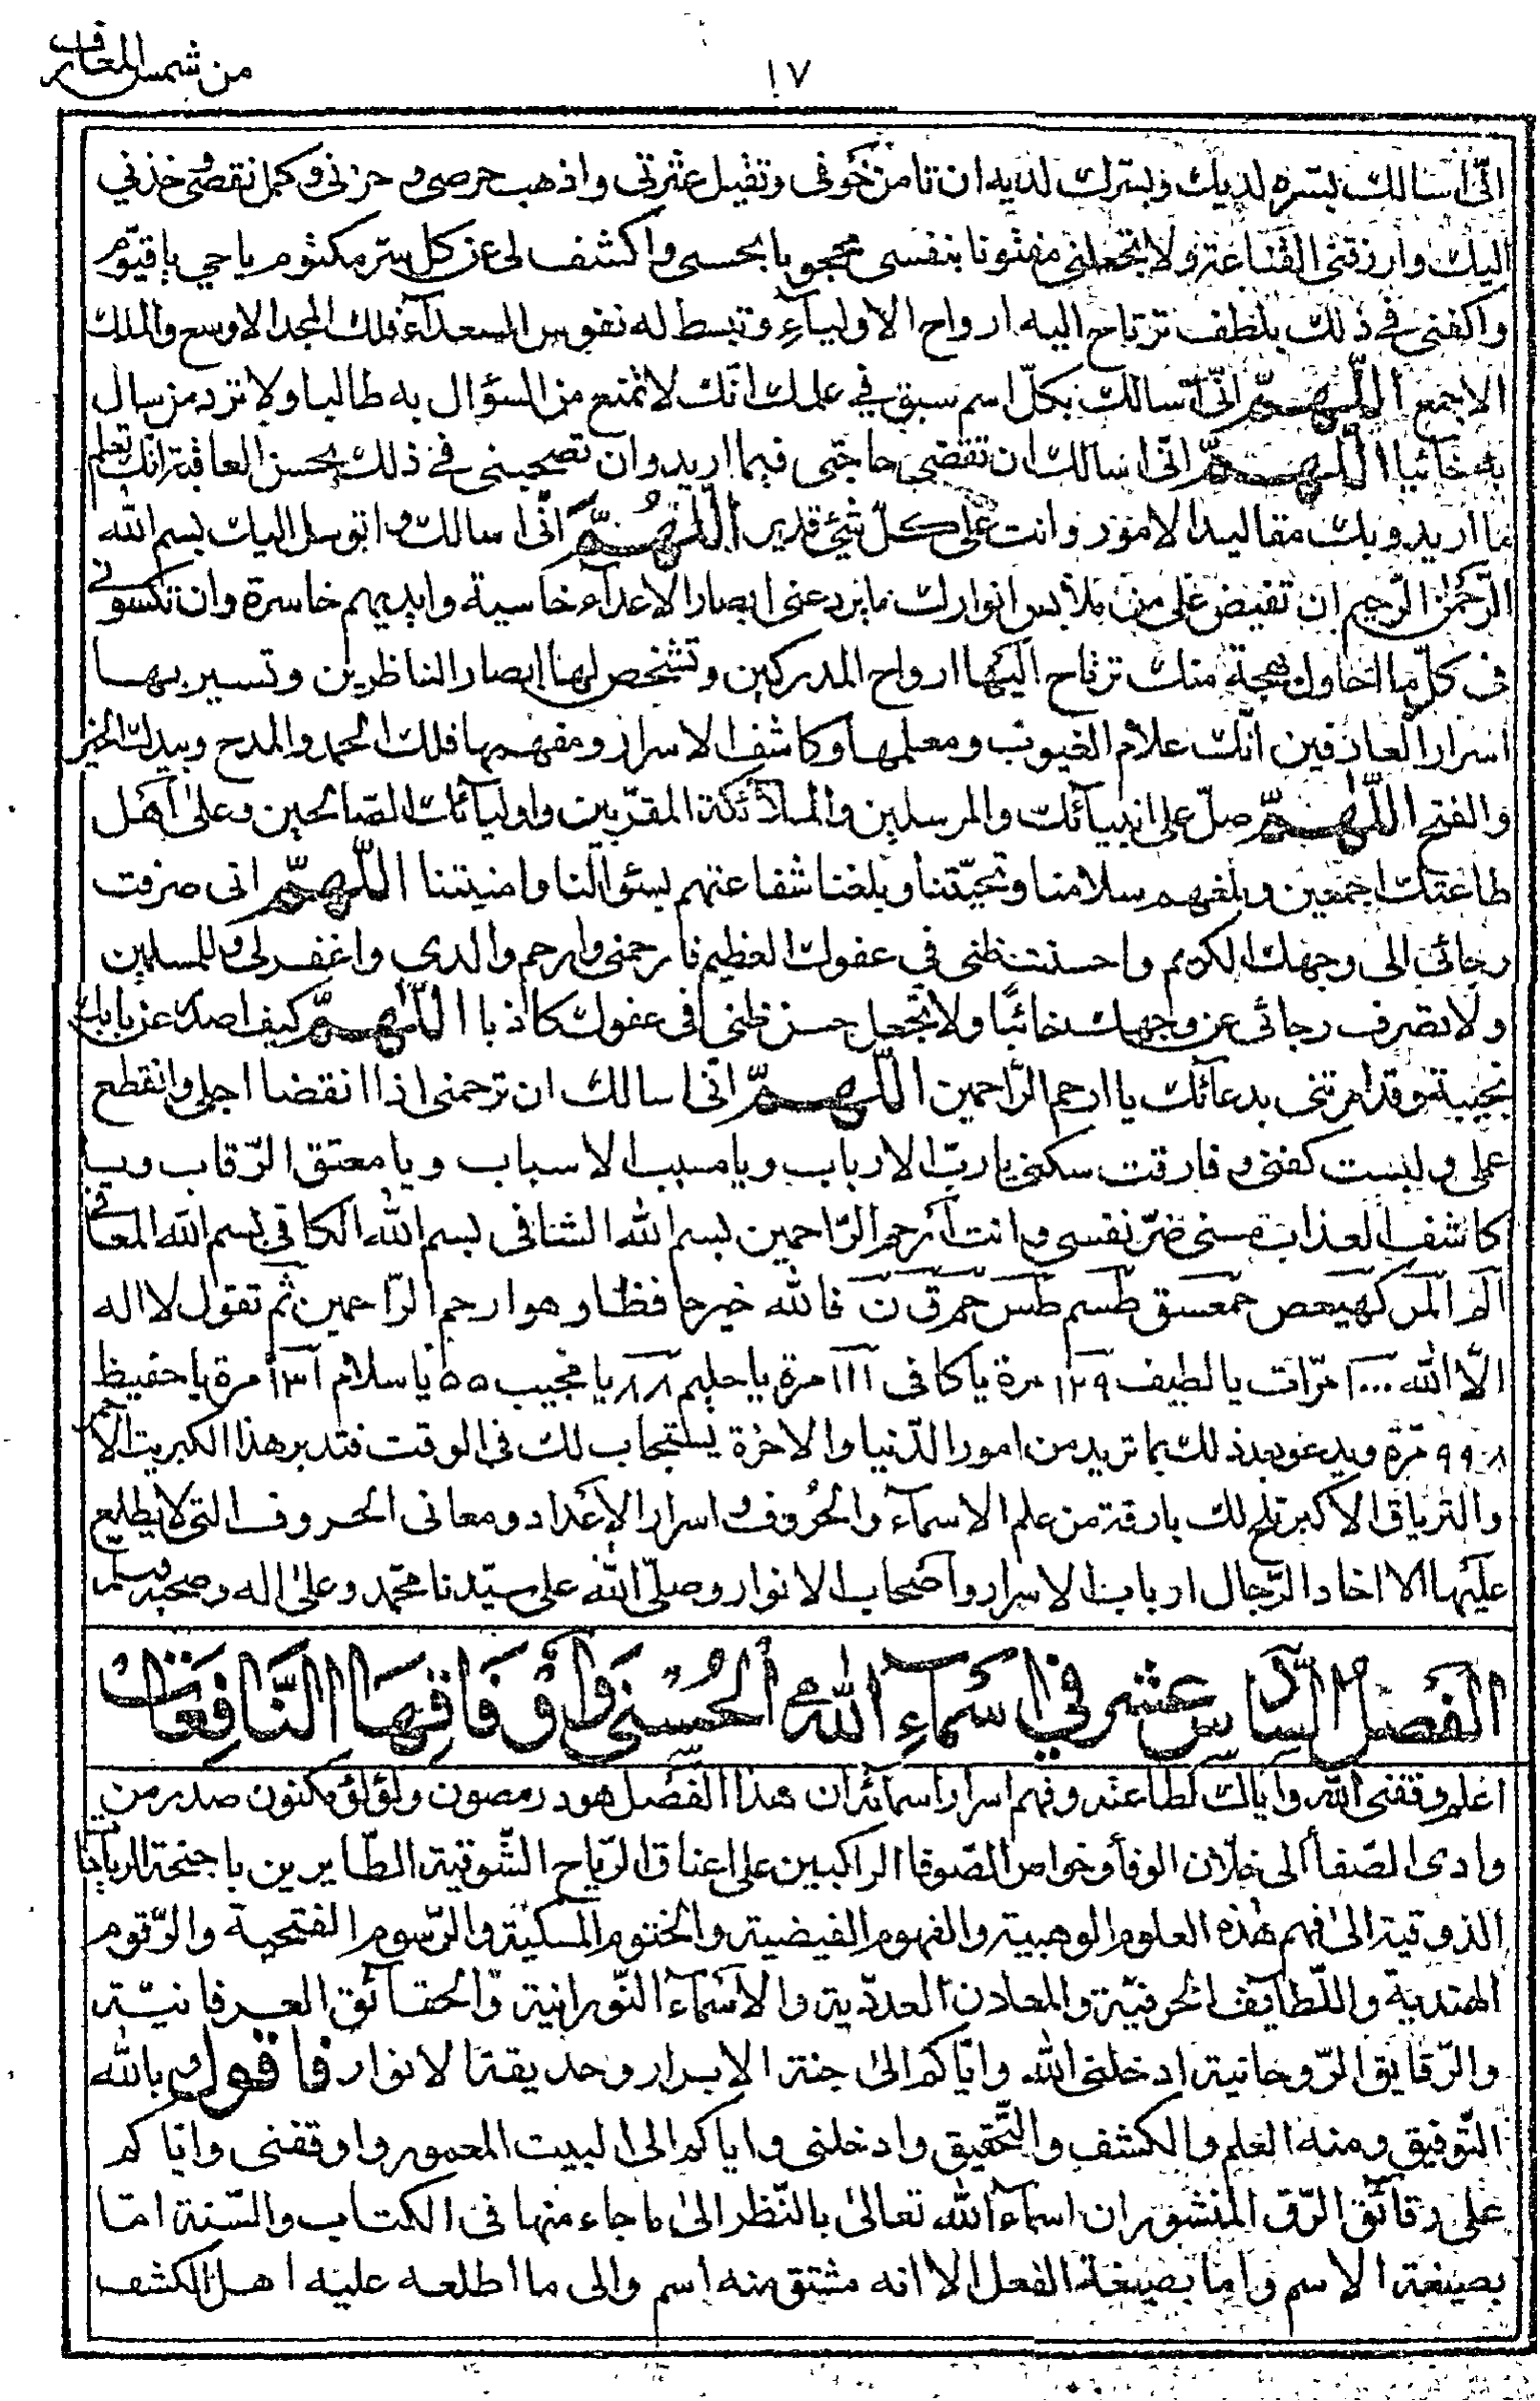 من شمس المعارف
١٧
انّى اسالك بسره لديك وبسرك لديه ان تامن خوفى وتقيل عثرتى واذهب حرصى وحزنى وكمل نقصى وخذنى
اليك وارزقنى القناعة ولا تجعلنى مفتونا بنفسى محجوبا بحسى واكشف لى عن كل سرّ مكتوم يا حي يا قيّوم
واكفنى فى ذلك بلطف ترتاح اليه ارواح الاولياءِ وتبسط له نفوس السعدآء فلك المجد الاوسع والملك
الاجمع اللّهـمّ انّى اسالك بكلّ اسم سبق في علمك انّك لا تمنع من السؤال به طالبا ولا ترد من سال
به خائبا اللّهـمّ انّى اسالك ان تقضى حاجتى فيما اريد وان تصحبنى فى ذلك بحسن العاقبة انّك تعلم
ما اريد وبك مقاليد الامور وانت على كلّ شئي قدير اللّهُـمَّ انّى اسالك واتوسل اليك بسم الله
الرّحمٰن الرّحيم ان تفيض على من ملابس انوارك ما يرد عنى ابصار الاعدآء خاسية وايديهم خاسرة وان تكسونى
فى كلّ ما احاول بهجة منك ترتاح اليها ارواح المدركين وتشخص لها ابصار الناظرين وتسير بها
اسرار العارفين انّك علام الغيوب ومعلمها وكاشف الاسرار ومفهمها فلك الحمد والمدح وبيدك الخير
والفتح اللّهـمّ صلّ على انبيائك والمرسلين والملآئكة المقرّبين واوليآئك الصّالحين وعلى اهل
طاعتك اجمعين وبلغهم سلامنا وتحيّتنا وبلغنا شفاعتهم بسئوالنا وامنيتنا اللّهـمّ انى صرفت
رجائى الى وجهك الكريم واحسنت ظنى فى عفوك العظيم فارحمنى وارحم والدى واغفر لى وللمسلمين
ولا تصرف رجائى عن وجهك خائبًا ولا تجعل حسن ظنى فى عفوك كاذبا اللّهـمّ كيف اصد عن بابك
بخيبة وقد امرتنى بدعآئك يا ارحم الرّاحمين اللّهـمّ انّى اسالك ان ترحمنى اذا انقضا اجلى وانقطع
عملى ولبست كفنى وفارقت سكنى يا ربّ الارباب ويا مسبب الاسباب ويا معتق الرّقاب ويا
كاشف العذاب مسنى ضرّ نفسى وانت ارحم الرّاحمين بسم الله الشافى بسم الله الكافى بسم الله المعافى
الٓمٓ الٓمٓرٓ كٓهيعٓصٓ حٓمعٓسٓقٓ طٓسٓمٓ طٓسٓ حٓمٓ قٓ نٓ فالله خير حافظا وهو ارحم الرّاحمين ثم تقول لا اله
الّا الله ١٠٠٠ مرّات يا لطيف ١٢٩ مرة يا كافى ١١١ مرة يا حليم ٨٨ يا مجيب ٥٥ يا سلام ١٣١ مرة يا حفيظ
٩٩٨ مرّة ويدعو بعد ذلك بما تريد من امور الدّنيا والاخرة يستجاب لك فى الوقت فتدبر هذا الكبريت الاحمر
والترياق الاكبر تلح لك بارقة من علم الاسمآء والحُروف واسرار الاعداد ومعانى الحروف التى لا يطلع
عليها الا احاد الرّجال ارباب الاسرار واصحاب الانوار وصلّى الله على سيّدنا محمّد وعلى اله وصحبه وسلم
الفَصل السّادس عشر في اسْمآءِ اللهِ الحُسنَى وَاوْفاقِهَا النَّافِعَات
اعلم وفقنى الله واياك لطاعته وفهم اسرار اسمائه ان هذا الفصل هو در مصون ولؤلؤ مكنون صدر من
وادى الصّفا الى خلّان الوفا وخواص الصّوفا الراكبين على اعناق الرّياح الشّوقية الطّايرين باجنحة الارتياحات
الذوقية الىٰ فهم هٰذه العلوم الوهبية والفهوم الفيضية والختوم المسكيّة والرّسوم الفتحية والرّقوم
الهندية واللّطآيف الحرفيّة والمعادن العدديّة والاسمآء النّورانية والحقآئق العرفانيّة
والرّقايق الرّوحانية ادخلنى الله واياكم الىٰ جنة الابرار وحديقة الانوار فاقول بالله
التّوفيق ومنه العلم والكشف والتّحقيق وادخلنى واياكم الى البيت المعمور واوقفنى واياكم
على رقآئق الرّق المنشور ان اسمآء الله تعالىٰ بالنّظر الىٰ ما جاء منها فى الكتاب والسّنة امّا
بصيغة الاسم واما بصيغة الفعل الا انه مشتق منه اسم والى ما اطلعه عليه اهل الكشف